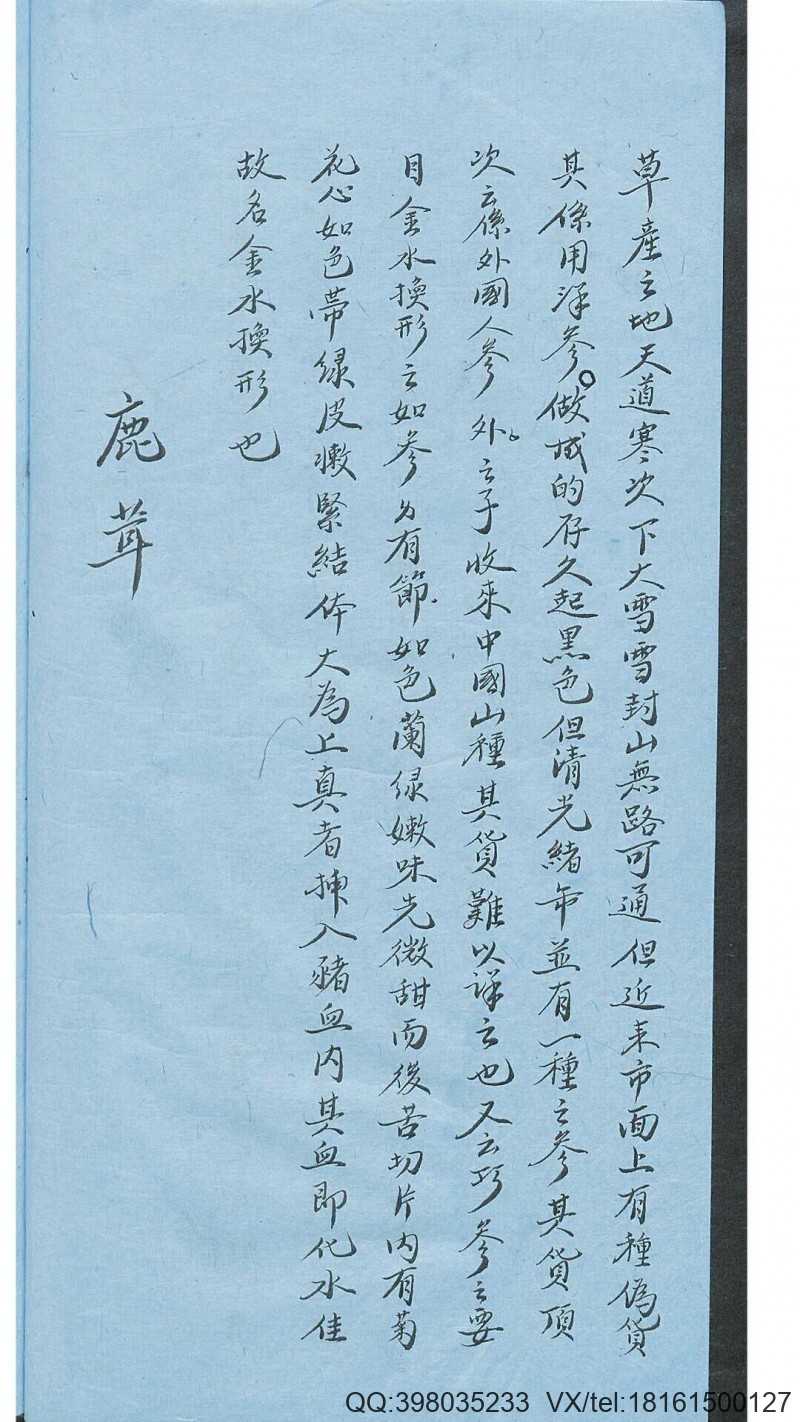 草產之地天道寒次下大雪雪封山無路可通但近来市面上有種偽貨
其係用洋參。做成的存久起黑色但清光緒年並有一種之參其貨頂
次云係外國人參外。云子收來中國山種其貨難以詳云也又云巧參之要
目金水換形云如參名有節如色蘭绿嫩味先微甜而後苦切片内有菊
花心如色帶绿皮嫩緊結体大為上真者捙入豬血内其血即化水佳
故名金水換形也
鹿茸
QQ:398035233 VX/tel:18161500127